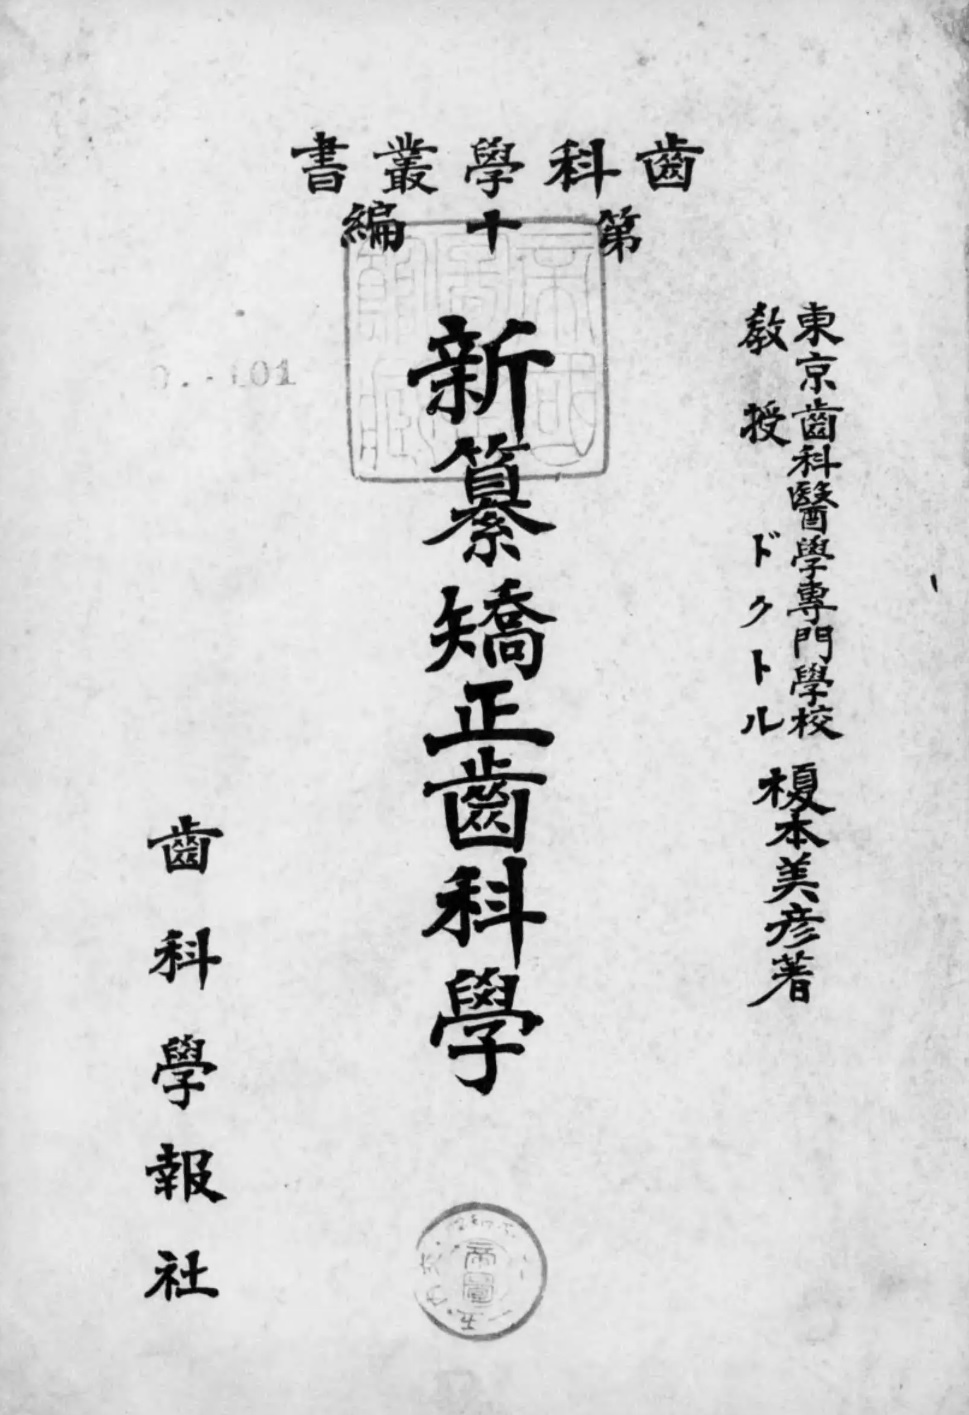 齒科學叢書
第十編
東京齒科醫學專門學校
敎授 ドクトル
榎本美彦著
新纂矯正齒科學
齒科學報社